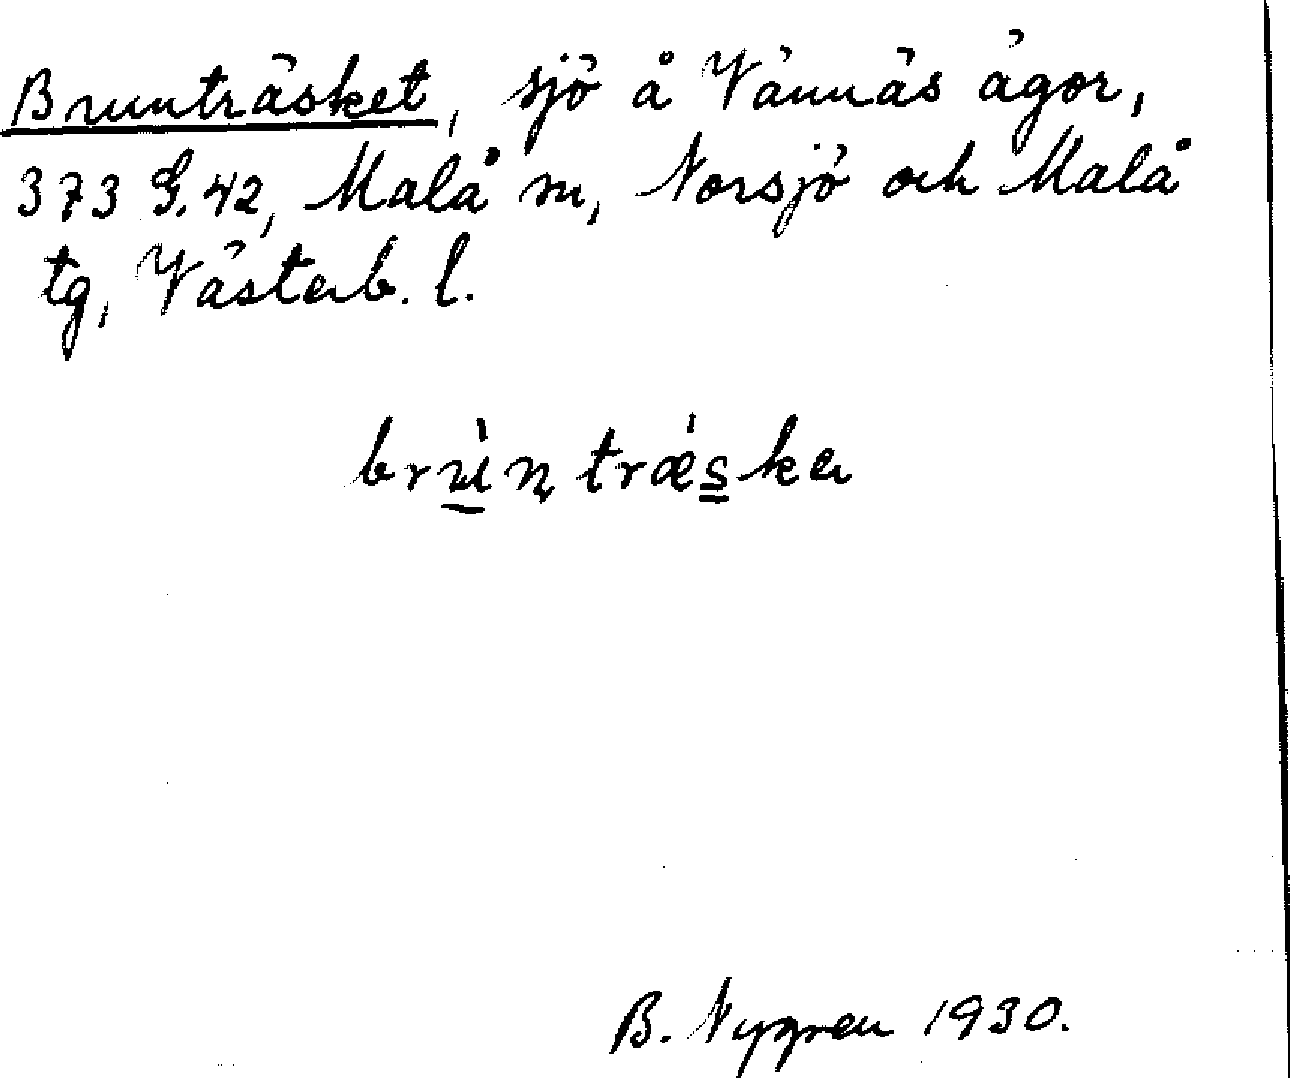 Brunträsket, sjö å Vännäs ägor,
373 G. 42, Malå sn, Norsjö och Malå
tg, Västerb. l.
brùn̥ træ̀s̳ka
B. Nygren 1930.